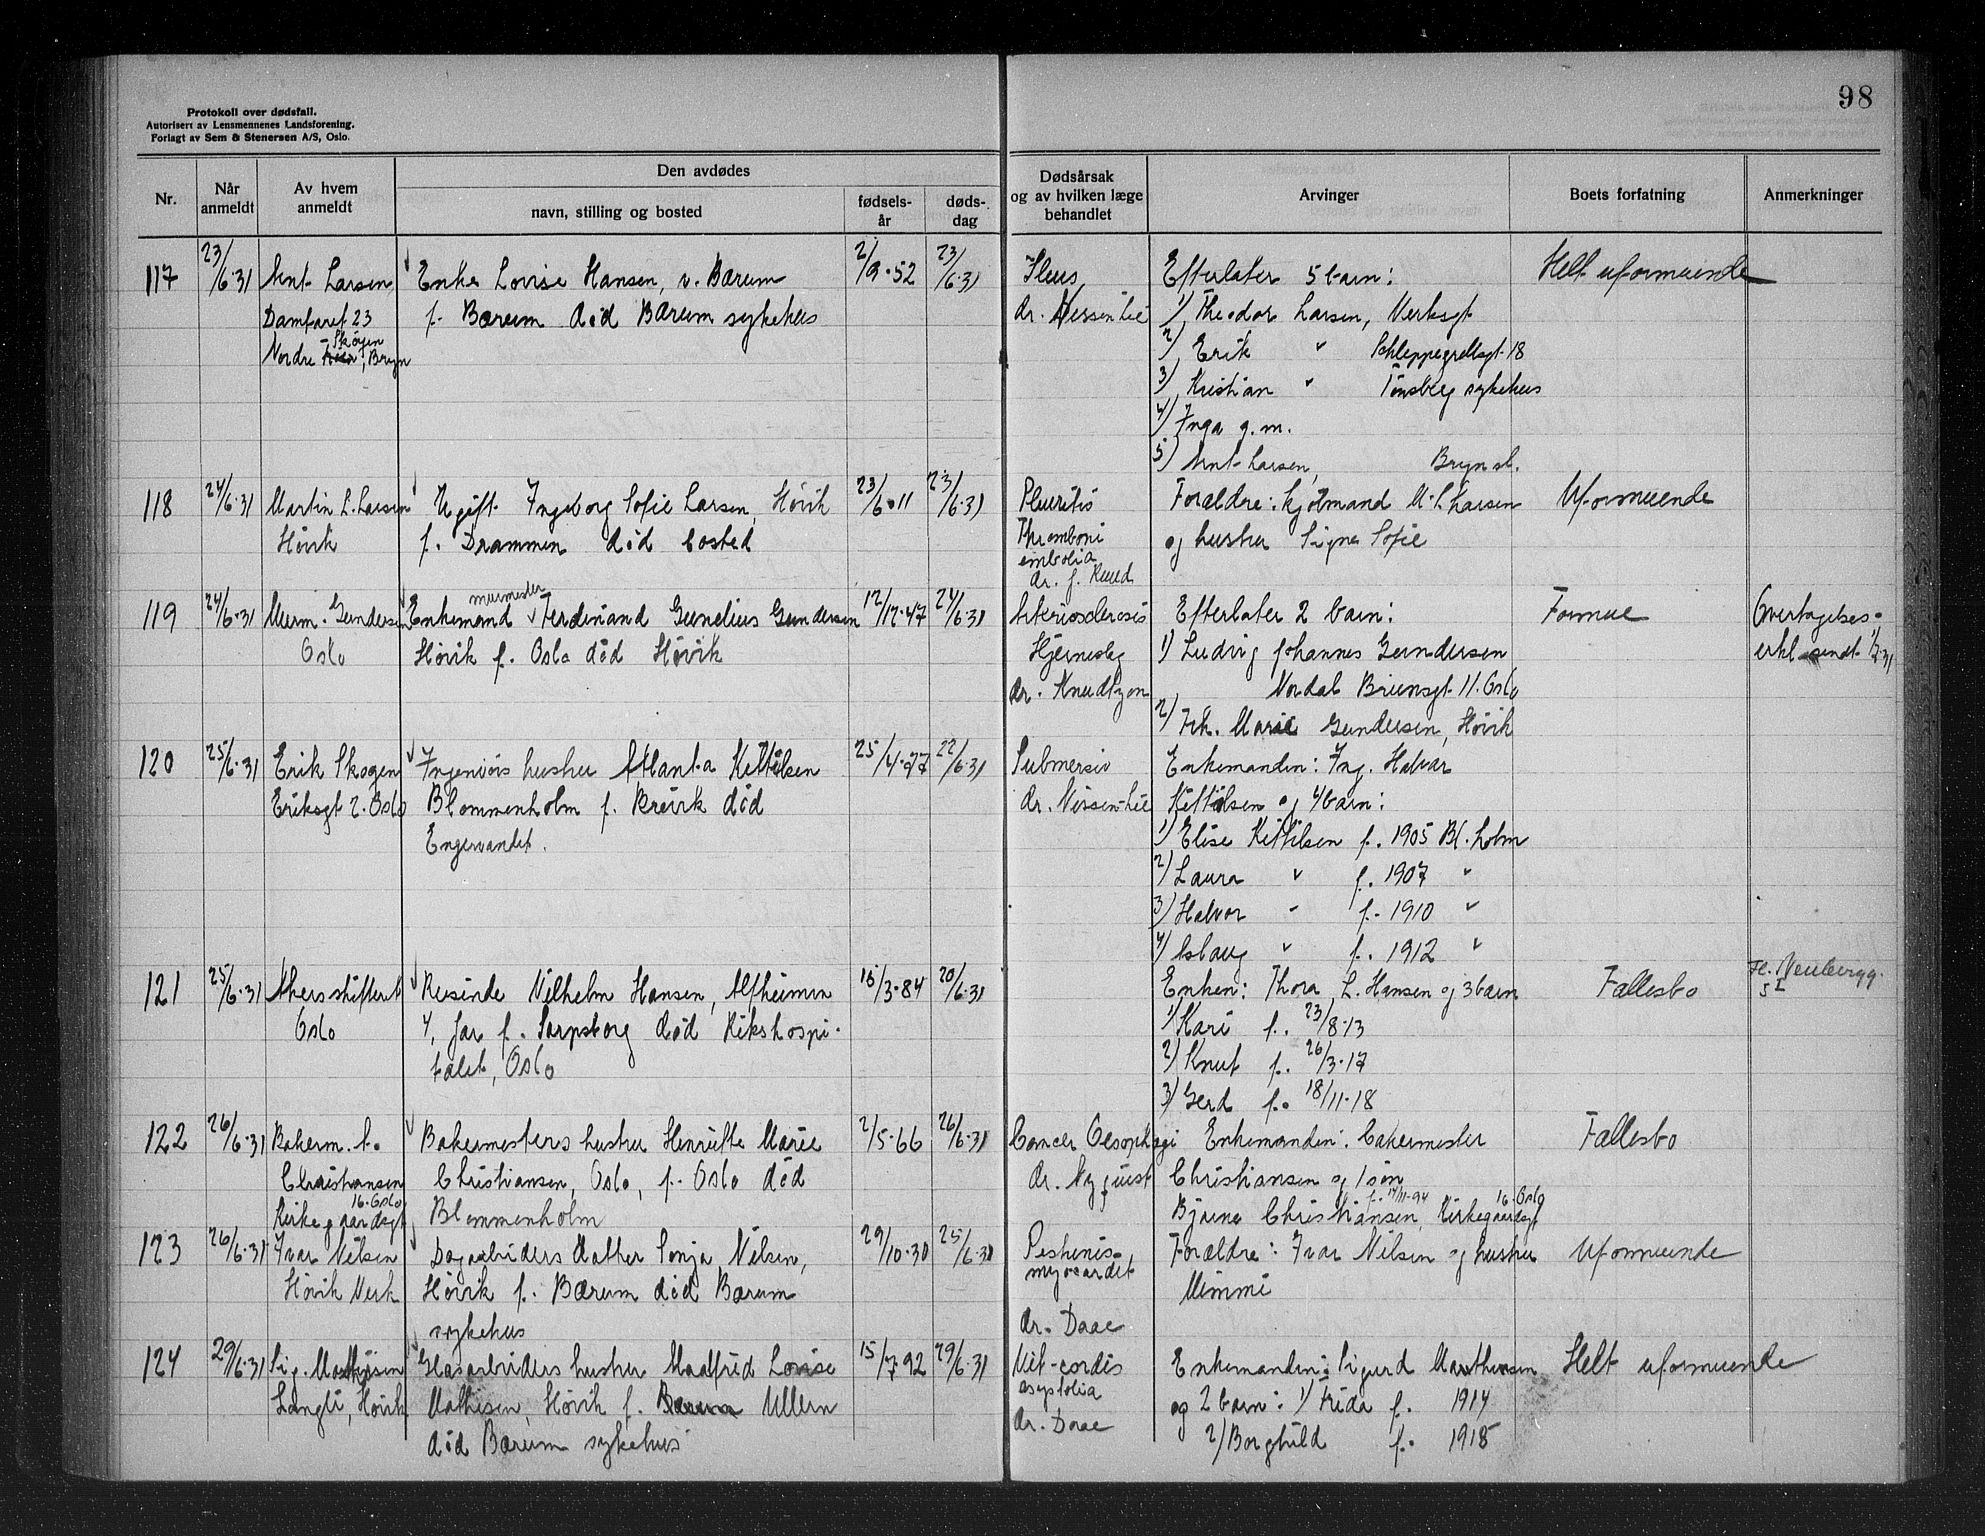 98
Protokoll over dødsfall.
Autorisert av Lensmennenes Landsforening.
Forlagt av Sem & Stenersen A/S, Oslo.
Nr.
Når anmeldt
Av hvem anmeldt
Den avdødes
navn, stilling og bosted
fødsels-år
døds-dag
Dødsårsak og av hvilken læge behandlet
Arvinger
Boets forfatning
Anmerkninger
117
23/6.31
Arnt Larsen
Damfaret 23
Nordre Skøyen, Bryn
Enke Lovise Hansen, v. Bærum
f. Bærum død Bærum sykehus
2/9.52
23/6.31
Ileus
dr. Nissen Lie
Efterlater 5 barn:
1) Theodor Larsen, Verksgt
2) Erik " Schleppegrellsgt. 18
3) Kristian " Tønsberg sykehus
4) Inga g.m.
5) Arnt Larsen, Bryn st.
Helt uformuende
118
24/6.31
Martin L. Larsen
Høvik
Ugift Ingeborg Sofie Larsen, Høvik
f. Drammen død bosted
23/6.11
23/6.31
Pleuritis
Thromboni
embolia
dr. J. Ruud
Forældre: kjølmand M. L. Larsen
og hustru Signe Sofie
Uformuende
119
24/6.31
Murm. Gundersen
Oslo
murmester
Enkemand Ferdinand Gunelius Gundersen
Høvik f. Oslo død Høvik
12/12.47
24/6.31
Arteriosclerosis
Hjerneslag
dr. Knudtzon
Efterlater 2 barn:
1) Ludvig Johannes Gundersen
Nordal Brunsgt. 11. Oslo
2) Frk. Marie Gundersen, Høvik
Formue
Overtagelses-
erkl. sendt 1/7.31
120
25/6.31
Erik Skogen
Eriksgt 2. Oslo
Ingeniørs hustru Atlanta Kittilsen
Blommenholm f. Brevik død
Engervandet.
25/4.77
22/6.31
Submersio
dr. Nissen-Lie
Enkemanden: Ing. Halvar
Kittilsen og 4 barn:
1) Elise Kittilsen f. 1905 Bl.holm
2) Laura " f. 1907 "
3) Halvor " f. 1910 "
4) Aslaug " f. 1912 "
121
25/6.31
Akers skifterett
Oslo
Reisende Vilhelm Hansen, Alfheimvn
4, Jar f. Sarpsborg død Rikshospi-
talet, Oslo
15/3.84
20/6.31
Enken: Thora L. Hansen og 3 barn
1) Kari f. 23/8.13
2) Knut f. 26/3.17
3) Gerd f. 18/11.18
Fellesbo
122
26/6.31
Bakerm. A.
Christiansen
Kirkegaardsgt 16. Oslo
Bakermesters hustru Henriette Marie
Christiansen, Oslo, f. Oslo død
Blommenholm
2/5.66
26/6.31
Cancer Oesophagi
dr. Nyquist
Enkemanden: bakermester
Christiansen og 1 søn
Bjarne Christiansen, f. 14/11-94 Kirkegaardsgt 16. Oslo
Fellesbo
123
26/6.31
Ivar Nilsen
Høvik Verk
Dagarbeiders datter Sonja Nilsen,
Høvik f. Bærum død Bærum
sykehus
29/10.30
25/6.31
myocardet
dr. Daae
Forældre: Ivar Nilsen og hustru
Mimmi
Uformuende
124
29/6.31
Sig. Mathisen
Langli, Høvik
Glasarbeiders hustru Madfrid Lovise
Mathisen, Høvik f. Bærum Ullern
død Bærum sykehus
15/7 92
29/6.31
Vit. cordis
asystolia
dr. Daae
Enkemanden: Sigurd Mathisen
og 2 barn: 1) Frida f. 1914
2) Borghild f. 1918
Helt uformuende